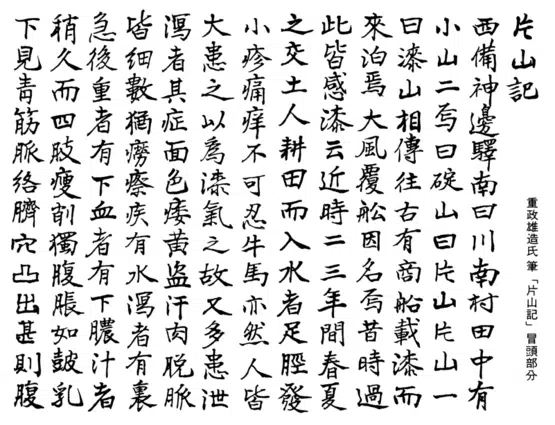 片山記
西備神邊驛南曰川南村田中有
小山二焉曰碇山曰片山片山一
曰漆山相傳往古有商船載漆而
來泊焉大風覆舩因名焉昔時過
此皆感漆云近時二三年間春夏
之交土人耕田而入水者足脛發
小疹痛痒不可忍牛馬亦然人皆
大患之以為漆氣之故又多患泄
瀉者其症面色痿黄盗汗肉脱脈
皆細數猶癆瘵疾有水瀉者有裏
急後重者有下血者有下膿汁者
稍久而四肢瘦削獨腹脹如皷乳
下見青筋脈絡臍穴凸出甚則腹
重政雄造氏 筆「片山記」冒頭部分